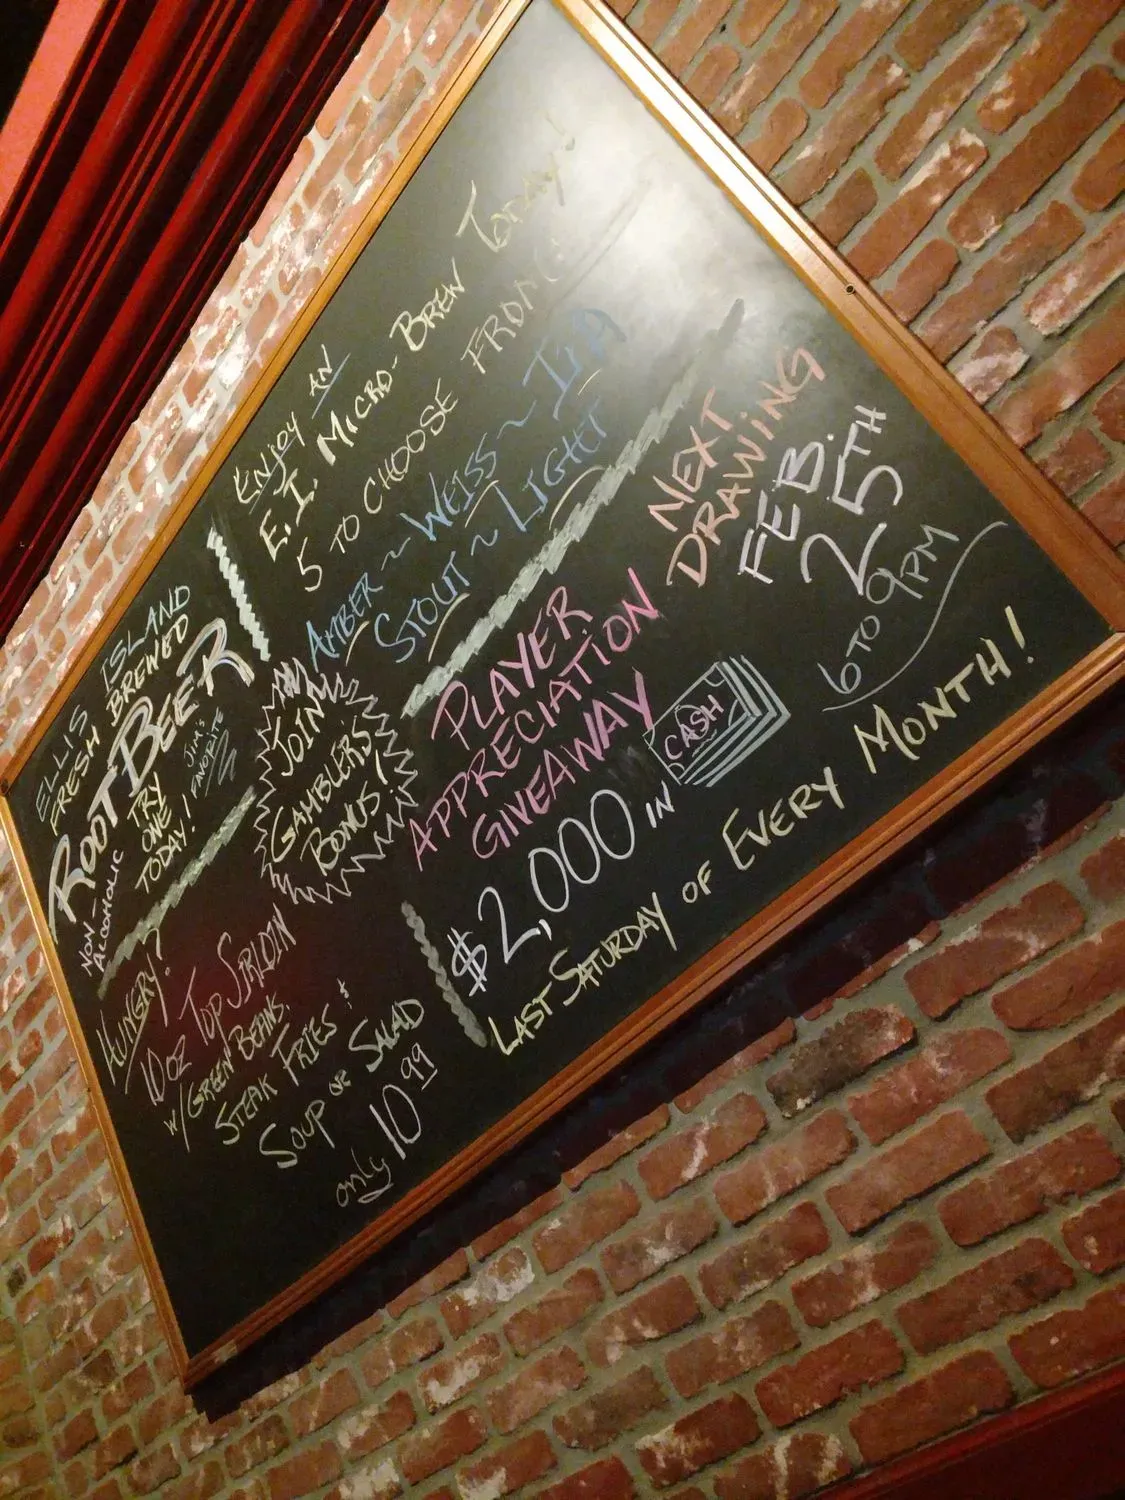 ELLIS ISLAND
FRESH BREWED
ROOT BEER
NON-
ALCOHOLIC
TRY
ONE
TODAY!
JIM'S
FAVORITE
ENJOY AN
E.I. MICRO-BREW TODAY!
5 TO CHOOSE FROM:
AMBER ~ WEISS ~ IPA
STOUT ~ LIGHT
JOIN
GAMBLERS
BONUS!
HUNGRY?
10oz TOP SIRLOIN
W/GREEN BEANS,
STEAK FRIES &
SOUP or SALAD
only 10 99
PLAYER
APPRECIATION
GIVEAWAY
$2,000 IN
CASH
NEXT
DRAWING
FEB.
25TH
6 TO 9PM
LAST SATURDAY OF EVERY MONTH!